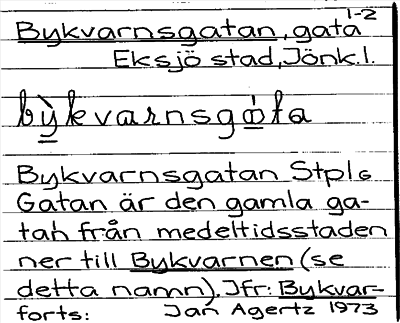 Bykvarnsgatan, gata 1-2
Eksjö stad, Jönk.l.
bỳkvarnsgáta
Bykvarnsgatan Stpl6
Gatan är den gamla ga-
tan från medeltidsstaden
ner till Bykvarnen (se
detta namn). Jfr: Bykvar-
forts: Jan Agertz 1973